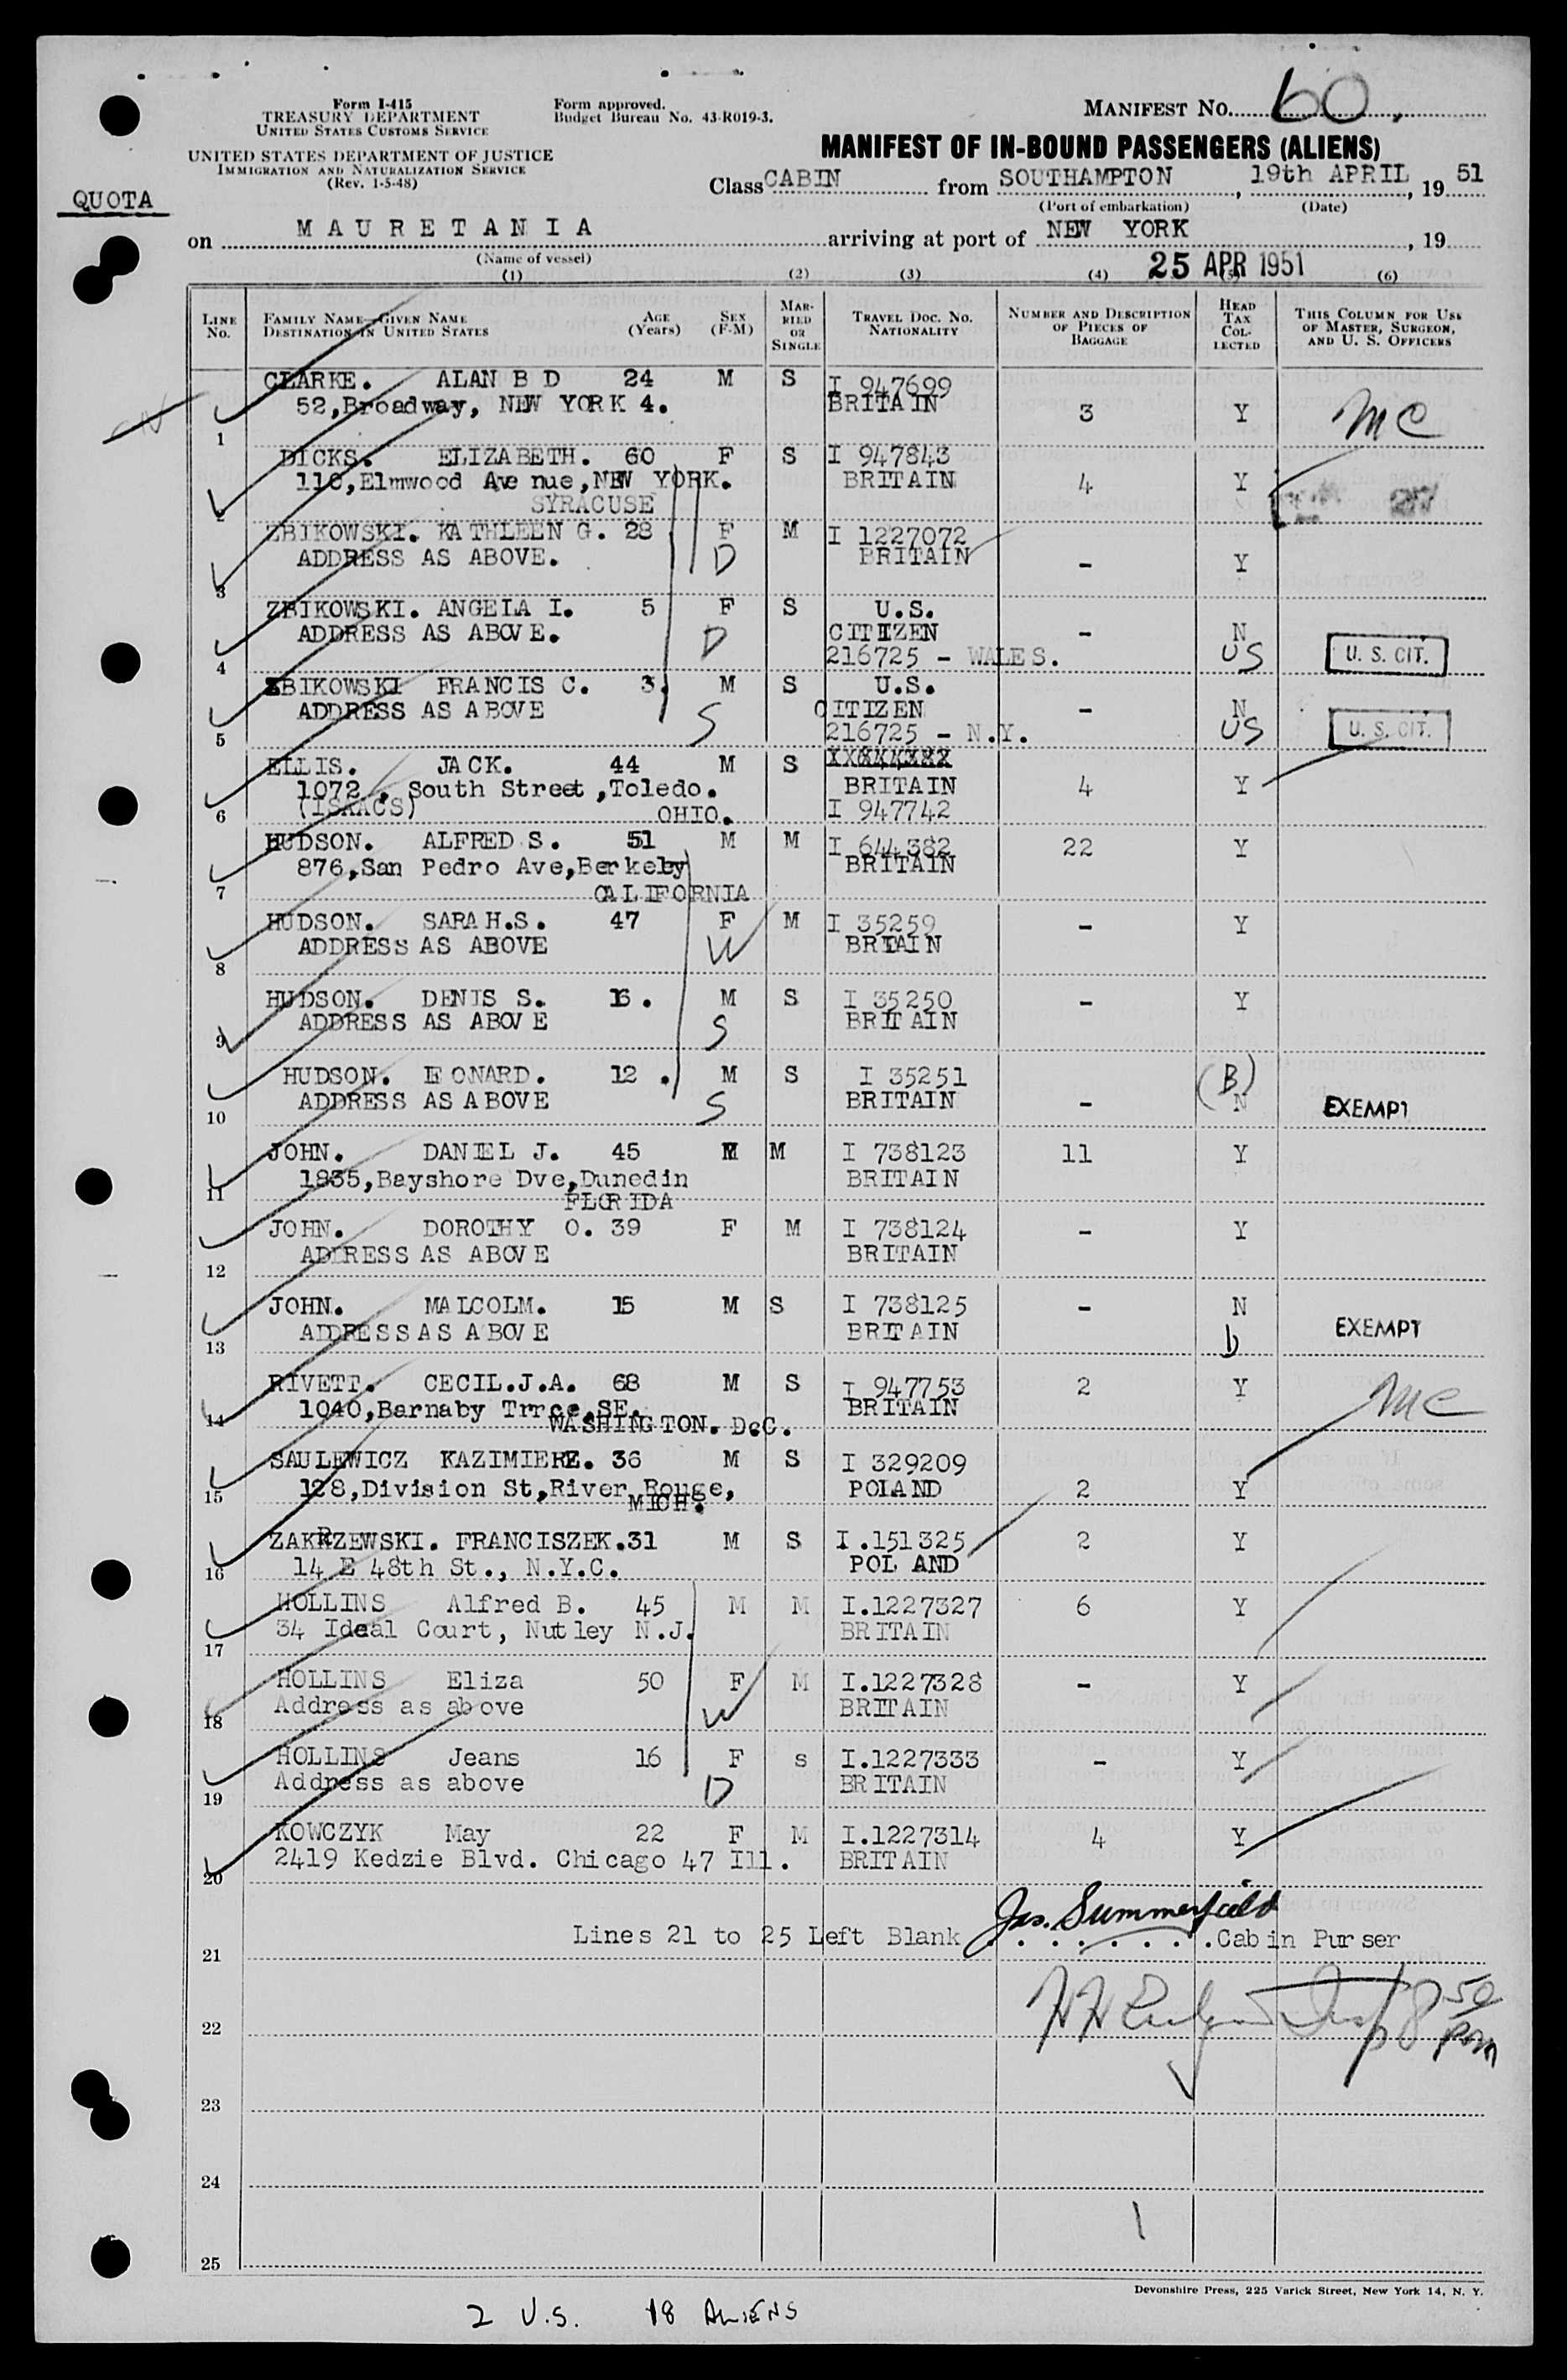 Form I-415
TREASURY DEPARTMENT
UNITED STATES CUSTOMS SERVICE
Form approved.
Budget Bureau No. 43-R019-3.
MANIFEST NO. 60.
UNITED STATES DEPARTMENT OF JUSTICE
IMMIGRATION AND NATURALIZATION SERVICE
(Rev. 1-5-48)
MANIFEST OF IN-BOUND PASSENGERS (ALIENS)
QUOTA
Class CABIN from SOUTHAMPTON, 19th APRIL, 19 51
(Port of embarkation) (Date)
on MAURETANIA arriving at port of NEW YORK, 19
(Name of vessel)
25 APR 1951
(1) (2) (3) (4) (5) (6)
LINE NO. FAMILY NAME—GIVEN NAME DESTINATION IN UNITED STATES AGE (Years) SEX (F-M) MARRIED OR SINGLE TRAVEL DOC. NO. NATIONALITY NUMBER AND DESCRIPTION OF PIECES OF BAGGAGE HEAD TAX COLLECTED THIS COLUMN FOR USE OF MASTER, SURGEON, AND U. S. OFFICERS
CLARKE. ALAN B D 24 M S I 947699
52,Broadway, NEW YORK 4. BRITAIN 3 Y MC
1
DICKS. ELIZABETH. 60 F S I 947843
110,Elmwood Avenue,NEW YORK. BRITAIN 4 Y
SYRACUSE
2
ZBIKOWSKI. KATHLEEN G. 28 F M I 1227072
ADDRESS AS ABOVE. D BRITAIN - Y
3
ZBIKOWSKI. ANGELA I. 5 F S U.S.
ADDRESS AS ABOVE. D CITIZEN - N
4 216725 - WALES. US U. S. CIT.
ZBIKOWSKI FRANCIS C. 3. M S U.S.
ADDRESS AS ABOVE S CITIZEN - N
5 216725 - N.Y. US U. S. CIT.
ELLIS. JACK. 44 M S
1072, South Street,Toledo. BRITAIN 4 Y
6 (ISAACS) OHIO. I 947742
HUDSON. ALFRED S. 51 M M I 644382 22 Y
876,San Pedro Ave,Berkeley BRITAIN
7 CALIFORNIA
HUDSON. SARAH.S. 47 F M I 35259 - Y
ADDRESS AS ABOVE W BRITAIN
8
HUDSON. DENIS S. 16. M S I 35250 - Y
ADDRESS AS ABOVE S BRITAIN
9
HUDSON. LEONARD. 12. M S I 35251 (B)
ADDRESS AS ABOVE S BRITAIN - N EXEMPT
10
JOHN. DANIEL J. 45 M M I 738123 11 Y
1835,Bayshore Dve,Dunedin BRITAIN
11 FLORIDA
JOHN. DOROTHY O. 39 F M I 738124 - Y
ADDRESS AS ABOVE BRITAIN
12
JOHN. MALCOLM. 15 M S I 738125 - N
ADDRESS AS ABOVE BRITAIN b EXEMPT
13
RIVETT. CECIL.J.A. 68 M S I 947753 2 Y MC
1040,Barnaby Trrce,SE. BRITAIN
14 WASHINGTON. D.C.
SAULEWICZ KAZIMIERZ. 36 M S I 329209
128,Division St,River Rouge, POLAND 2 Y
15 MICH.
ZAKRZEWSKI. FRANCISZEK.31 M S I.151325 2 Y
14 E 48th St., N.Y.C. POLAND
16
HOLLINS Alfred B. 45 M M I.1227327 6 Y
34 Ideal Court, Nutley N.J. BRITAIN
17
HOLLINS Eliza 50 F M I.1227328 - Y
Address as above W BRITAIN
18
HOLLINS Jeans 16 F s I.1227333 - Y
Address as above D BRITAIN
19
KOWCZYK May 22 F M I.1227314 4 Y
2419 Kedzie Blvd. Chicago 47 Ill. BRITAIN
20
Jas. Summerfield
Lines 21 to 25 Left Blank . . . . . . . .Cabin Purser
21
8 50 pm
22
23
24
25
Devonshire Press, 225 Varick Street, New York 14, N. Y.
2 U.S. 18 ALIENS